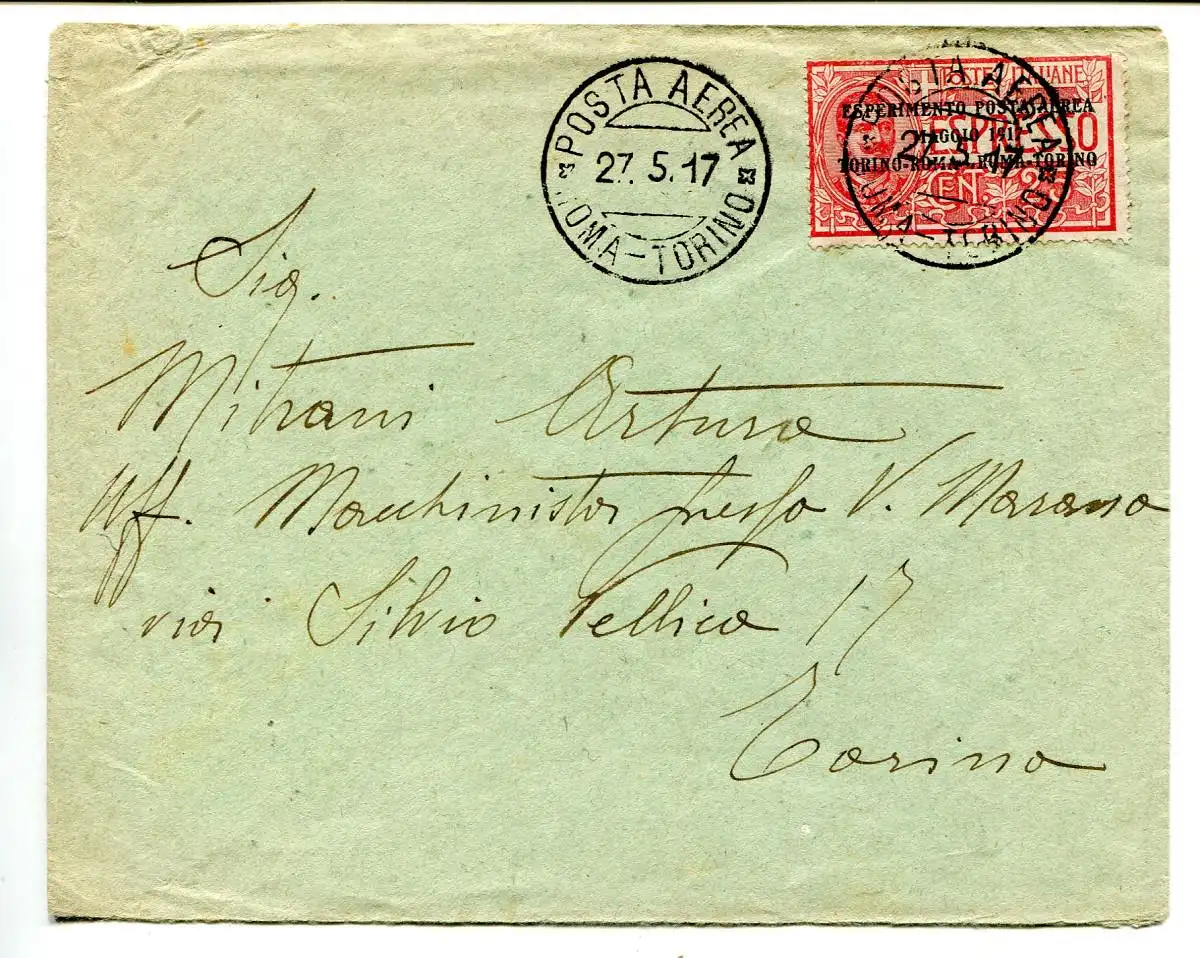 POSTA AEREA
27.5.17
ROMA-TORINO
POSTE ITALIANE
ESPERIMENTO POSTA AEREA
ESPRESSO
MAGGIO 1917
TORINO-ROMA · ROMA-TORINO
CENT. 25
POSTA AEREA
27.5.17
ROMA-TORINO
Sig.
Mitrani Arturo
Uff. Macchinista presso V. Marano
via Silvio Pellico 17
Torino